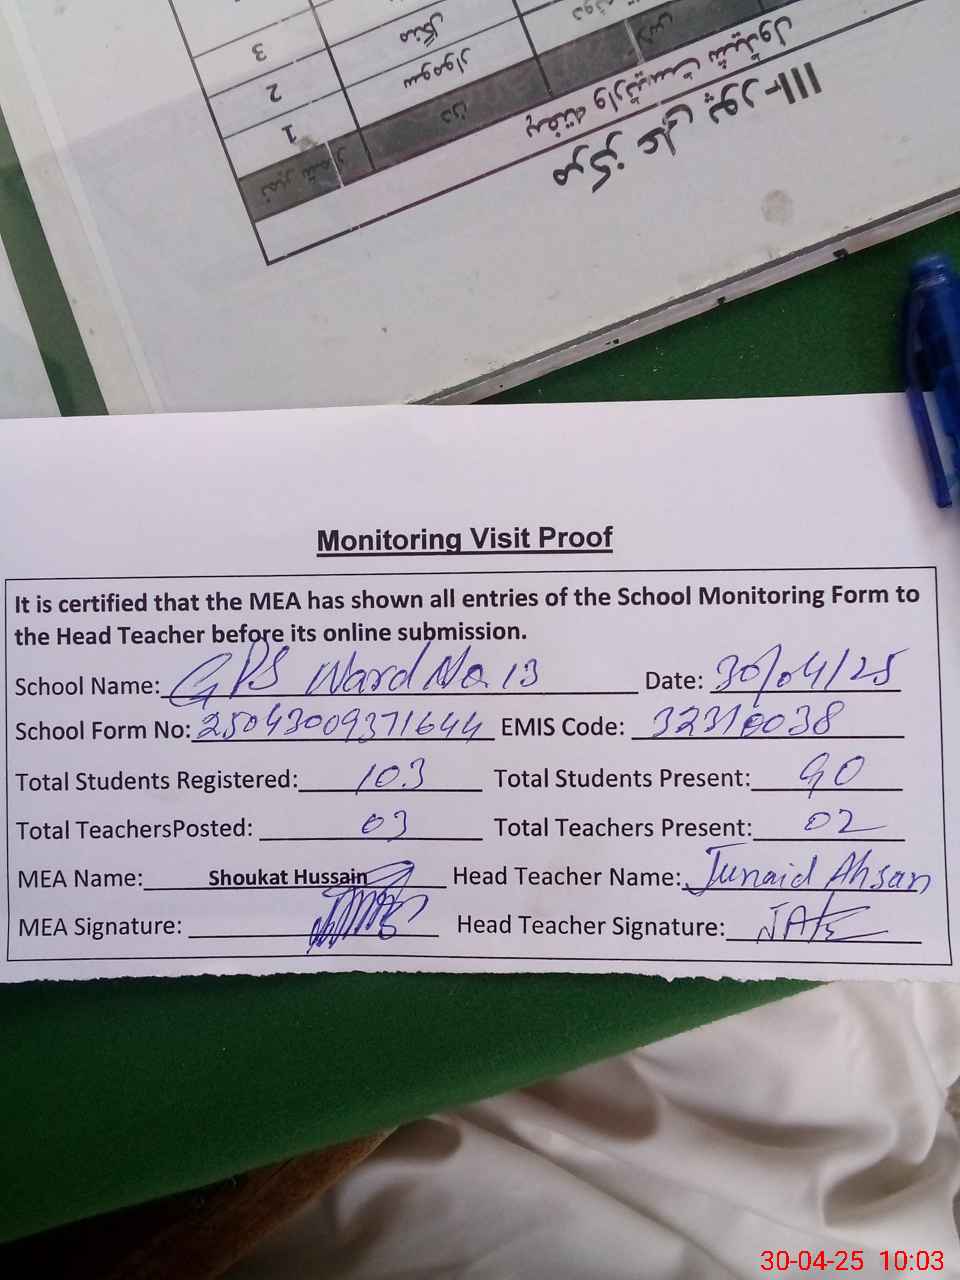 مرکز علی پور-III
ہفتہ وار ٹیسٹ شیڈول
نمبر شمار دن
1 سوموار
2 منگل
3
Monitoring Visit Proof
It is certified that the MEA has shown all entries of the School Monitoring Form to
the Head Teacher before its online submission.
School Name: GPS Ward No. 13 Date: 30/04/25
School Form No: 25043009371644 EMIS Code: 32310038
Total Students Registered: 103 Total Students Present: 90
Total TeachersPosted: 03 Total Teachers Present: 02
MEA Name: Shoukat Hussain Head Teacher Name: Junaid Ahsan
MEA Signature: Head Teacher Signature:
30-04-25 10:03